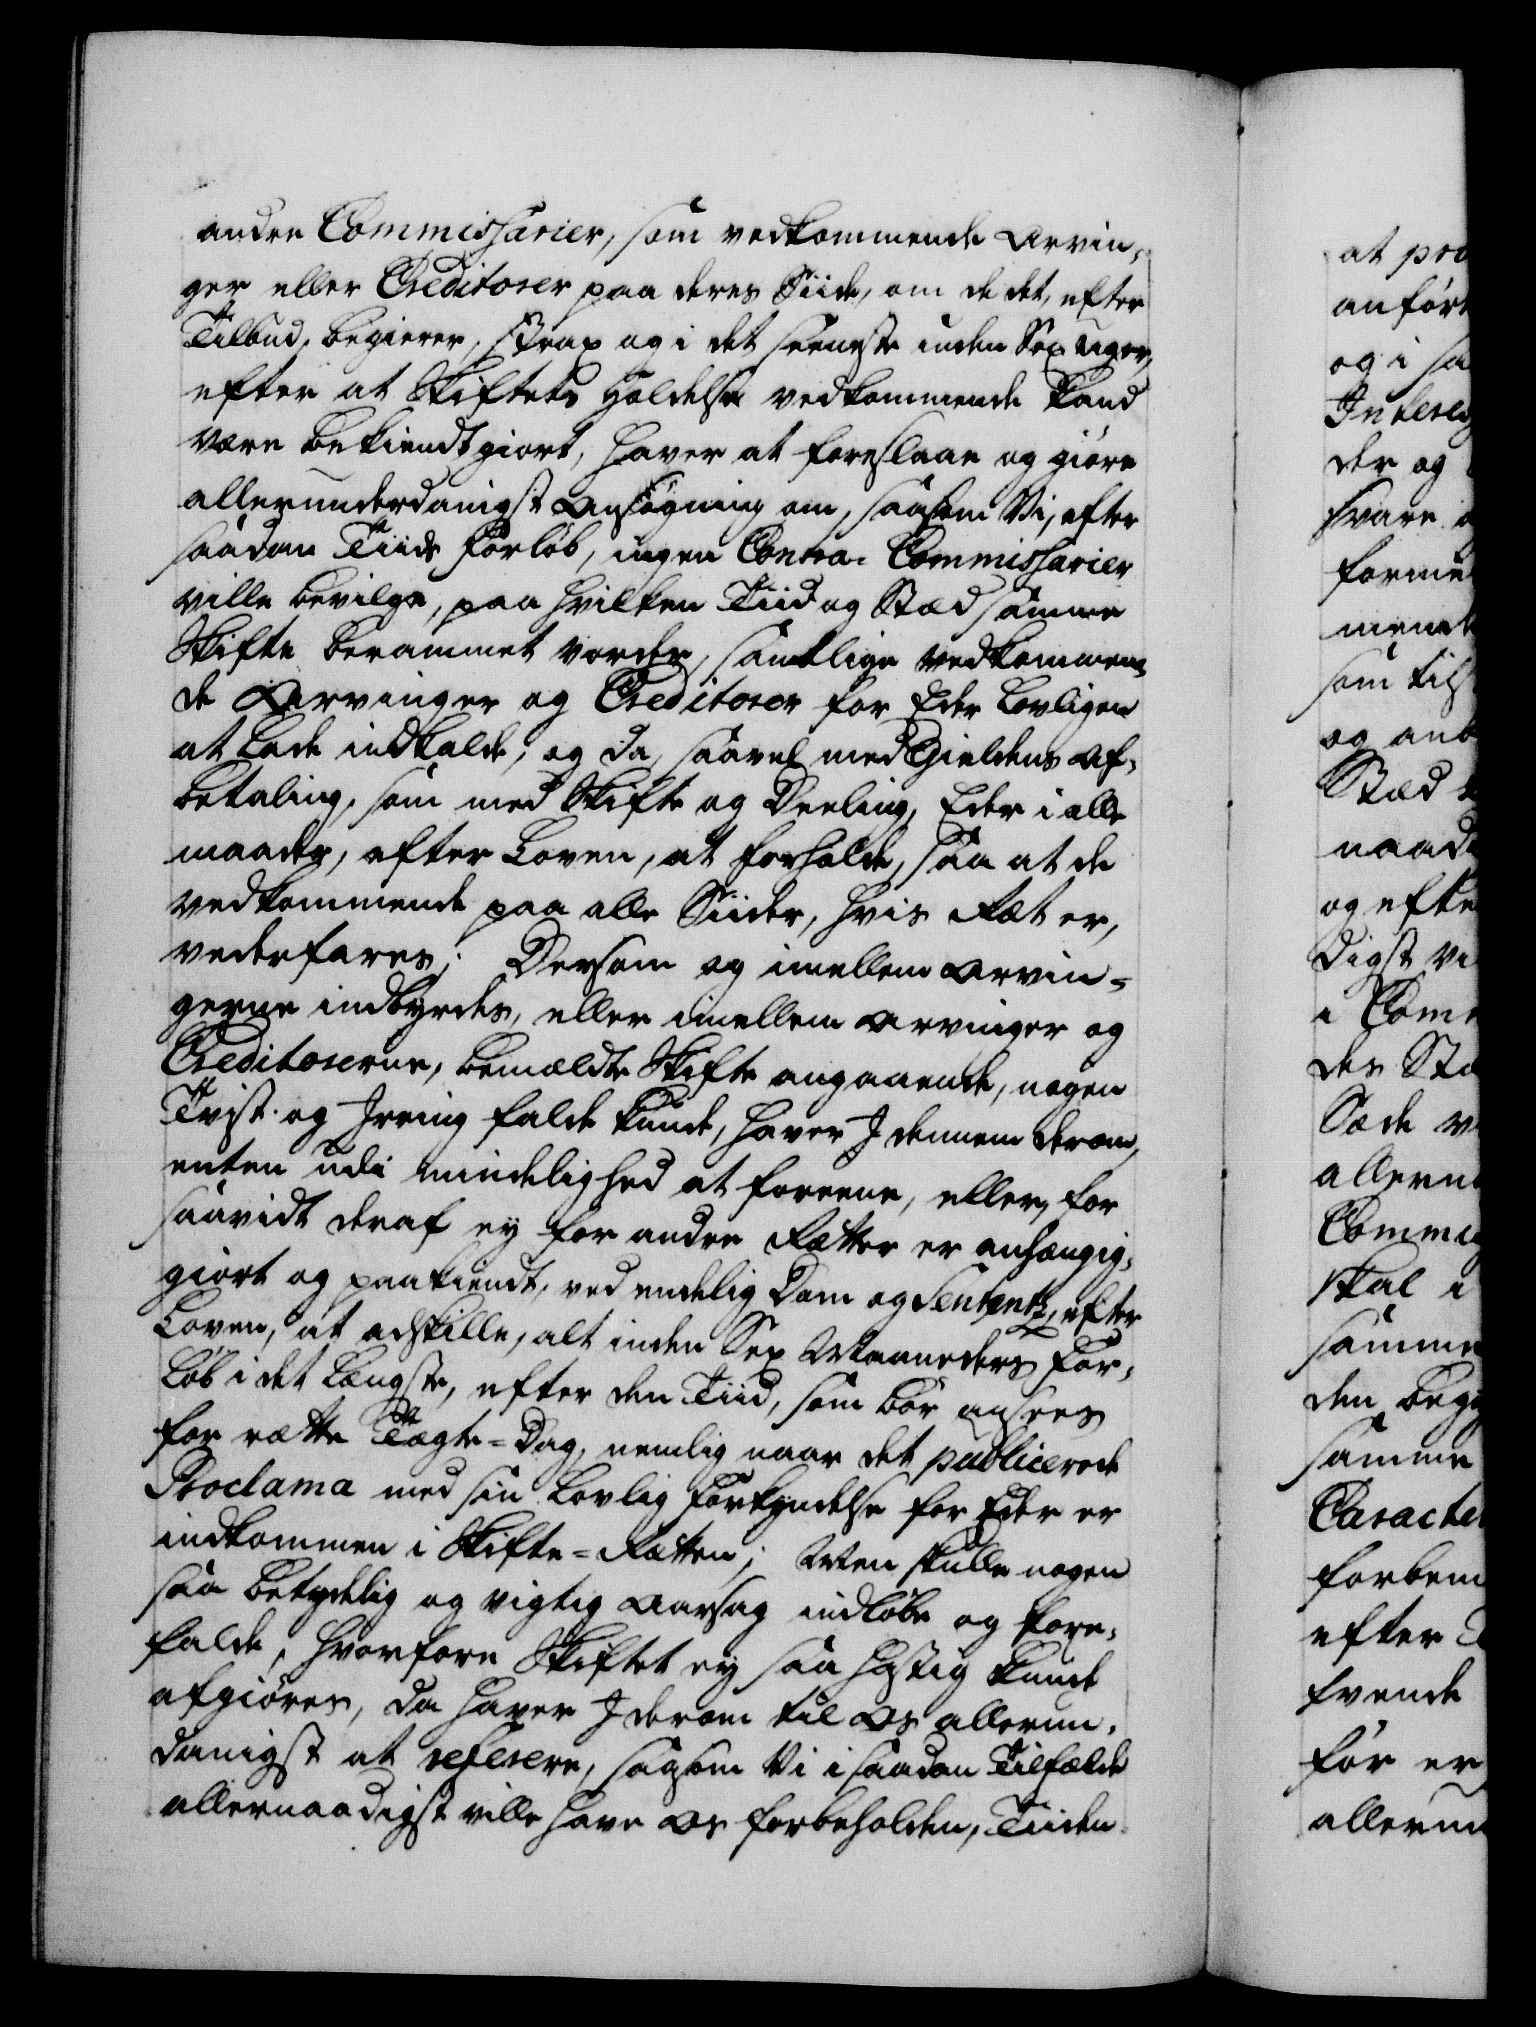 andre Commissarier, som vedkommende Arvin-
ger eller Creditorer paa deres Siide, om de det, efter
Tilbud, begierer, strax og i det seeneste inden Sex Uger,
efter at Skiftets Holdelse vedkommende kand
være bekiendtgiort, haver at foreslaae og giøre
allerunderdanigst Ansøgning om, saasom Vi, efter
saadan Tiids Forløb, ingen Contra-Commissarier
ville bevilge, paa hvilken Tiid og Stæd samme
Skifte berammet vorder, samtlige vedkommen-
de Arvinger og Creditorer for Eder lovligen
at lade indkalde, og da, saavel med Gieldens Af-
betaling, som med Skifte og Deeling, Eder i alle
maader, efter Loven, at forholde, saa at de
vedkommende paa alle Siider, hvis Ræt er,
vederfares; Dersom og imellem Arvin-
gerne indbyrdes, eller imellem Arvinger og
Creditorerne, bemældte Skifte angaaende, nogen
Tvist og Irring falde kunde, haver I dennem derom,
enten udi Mindelighed at foreene, eller, for
saavidt deraf ey for andre Rætter er anhængig-
giort og paakiendt, ved endelig Dom og Sententz, efter
Loven, at adskille, alt inden Sex Maaneders For-
løb i det længste, efter den Tiid, som bør ansees
for rætte Tægte-Dag, nemlig naar det publicerede
Proclama med sin lovlig Forkyndelse for Eder er
indkommen i Skifte-Rætten; Men skulle nogen
saa betydelig og vigtig Aarsag indløbe og fore-
falde, hvorfore Skiftet ey saa hastig kunde
afgiøres, da haver I derom til Os allerun-
danigst at referere, saasom Vi i saadan Tilfælde
allernaadigst ville have Os forbeholden, Tiiden
at pro
anført
og i sa
Interes
der og
svare
formu
mend
som tils
og anb
Stæd
naad
og efte
digst vi
i Com
des Stæ
Sæde
allerun
Commis
skal i
samme
den beg
samme
Caracte
forbem
efter
hvende
før er
allerun